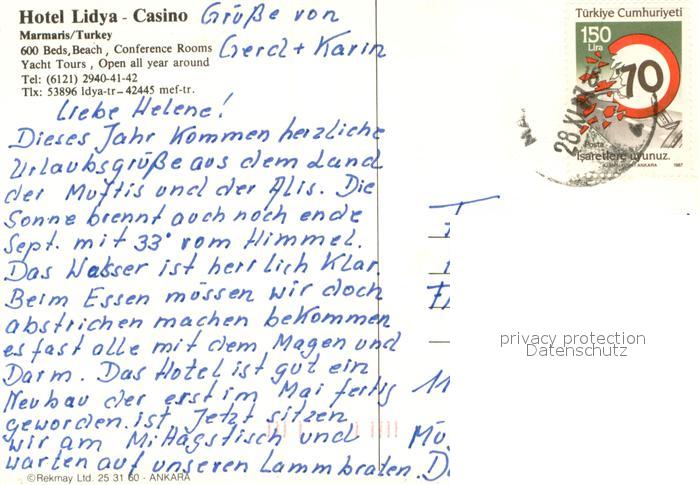 Hotel Lidya - Casino
Marmaris/Turkey
600 Beds,Beach , Conference Rooms
Yacht Tours , Open all year around
Tel: (6121) 2940-41-42
Tlx: 53896 ldya-tr-42445 mef-tr.
Grüße von
Gerd + Karin
Liebe Helene!
Dieses Jahr kommen herzliche
Urlaubsgrüße aus dem Land
der Muftis und der Alis. Die
Sonne brennt auch noch ende
Sept. mit 33° vom Himmel.
Das Wasser ist herrlich klar.
Beim Essen müssen wir doch
abstrichen machen bekommen
es fast alle mit dem Magen und
Darm. Das Hotel ist gut ein
Neubau der erst im Mai fertig
geworden ist. Jetzt sitzen
wir am Mittagstisch und
warten auf unseren Lammbraten. D
©Rekmay Ltd. 25 31 60 - ANKARA
Türkiye Cumhuriyeti
150
Lira
70
Posta
İşaretlere uyunuz.
ANKARA 1987
28
11
Mü
privacy protection
Datenschutz